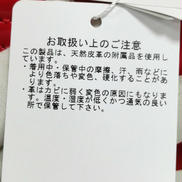 お取扱い上のご注意
この製品は、天然皮革の附属品を使用し
ています。
・着用中・保管中の摩擦、汗、雨などに
より色落ちや変色、硬化することがあ
ります。
・革はカビに弱く変色の原因にもなり
ます。温度・湿度が低くかつ通気の良い
所で保管して下さい。